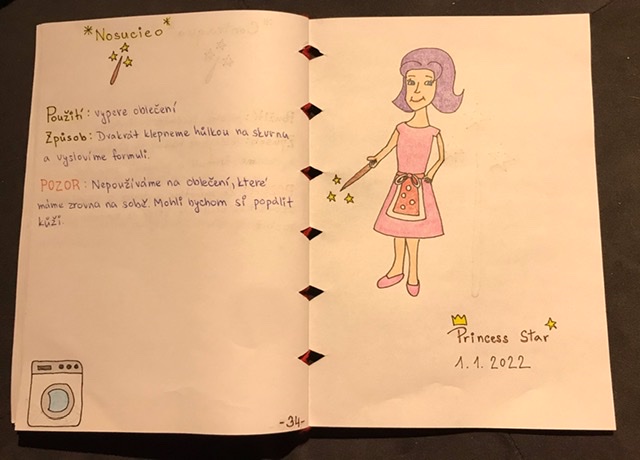 *Nosucieo*
Použití: vypere oblečení
Způsob: Dvakrát klepneme hůlkou na skvrnu
a vyslovíme formuli.
POZOR: Nepoužíváme na oblečení, které
máme zrovna na sobě. Mohli bychom si popálit
kůži.
-34-
Princess Star
1.1.2022